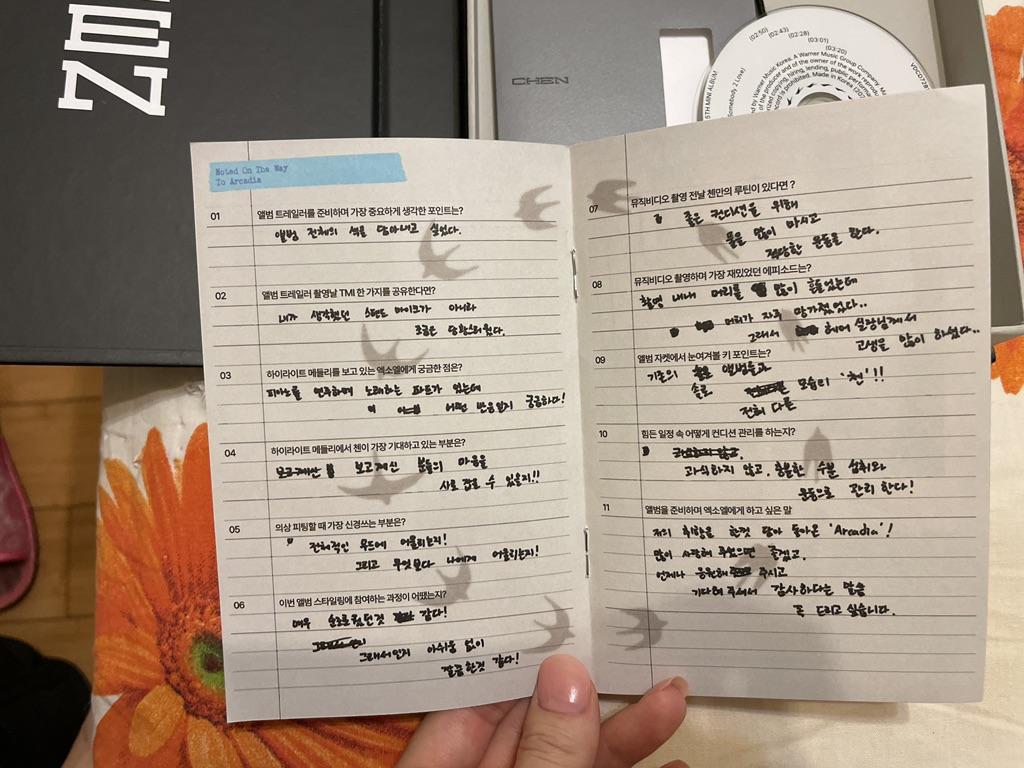 ZEN
CHEN
(02:50)
(02:43)
(02:28)
(03:01)
(03:20)
5TH MINI ALBUM
Somebody 2 Love)
VDCD7
by Warner Music Korea. A Warner Music Group Company.
of the producer and of the owner of the work
copying, hiring, lending, public
is prohibited. Made in Korea
Noted On The Way
To Arcadia
01 앨범 트레일러를 준비하며 가장 중요하게 생각한 포인트는?
앨범 전체의 색을 담아내고 싶었다.
02 앨범 트레일러 촬영날 TMI 한 가지를 공유한다면?
내가 생각했던 스탠드 마이크가 아니라
조금은 당황스러웠다.
03 하이라이트 메들리를 보고 있는 엑소엘에게 궁금한 점은?
피아노를 연주하며 노래하는 파트가 있는데
어떤 반응일지 궁금하다!
04 하이라이트 메들리에서 첸이 가장 기대하고 있는 부분은?
보고계신 분들의 마음을
사로 잡을 수 있을지!!
05 의상 피팅할 때 가장 신경쓰는 부분은?
전체적인 무드에 어울리는지!
그리고 무엇보다 나에게 어울리는지!
06 이번 앨범 스타일링에 참여하는 과정이 어땠는지?
매우 순조로웠던것 같다!
그래서인지 아쉬움 없이
깔끔한것 같다!
07 뮤직비디오 촬영 전날 첸만의 루틴이 있다면 ?
좋은 컨디션을 위해
물을 많이 마시고
적당한 운동을 한다.
08 뮤직비디오 촬영하며 가장 재밌었던 에피소드는?
촬영 내내 머리를 많이 흔들었는데
머리가 자주 망가졌었다..
그래서 헤어 실장님께서
고생을 많이 하셨다..
09 앨범 자켓에서 눈여겨볼 키 포인트는?
기존의 앨범들과
솔로 모습의 '첸'!!
전혀 다른
10 힘든 일정 속 어떻게 컨디션 관리를 하는지?
과식하지 않고, 충분한 수분 섭취와
운동으로 관리 한다!
11 앨범을 준비하며 엑소엘에게 하고 싶은 말
저의 취향을 한껏 담아 돌아온 'Arcadia'!
많이 사랑해 주셨으면 좋겠고,
언제나 응원해 주시고
기다려 주셔서 감사하다는 말씀
꼭 드리고 싶습니다.